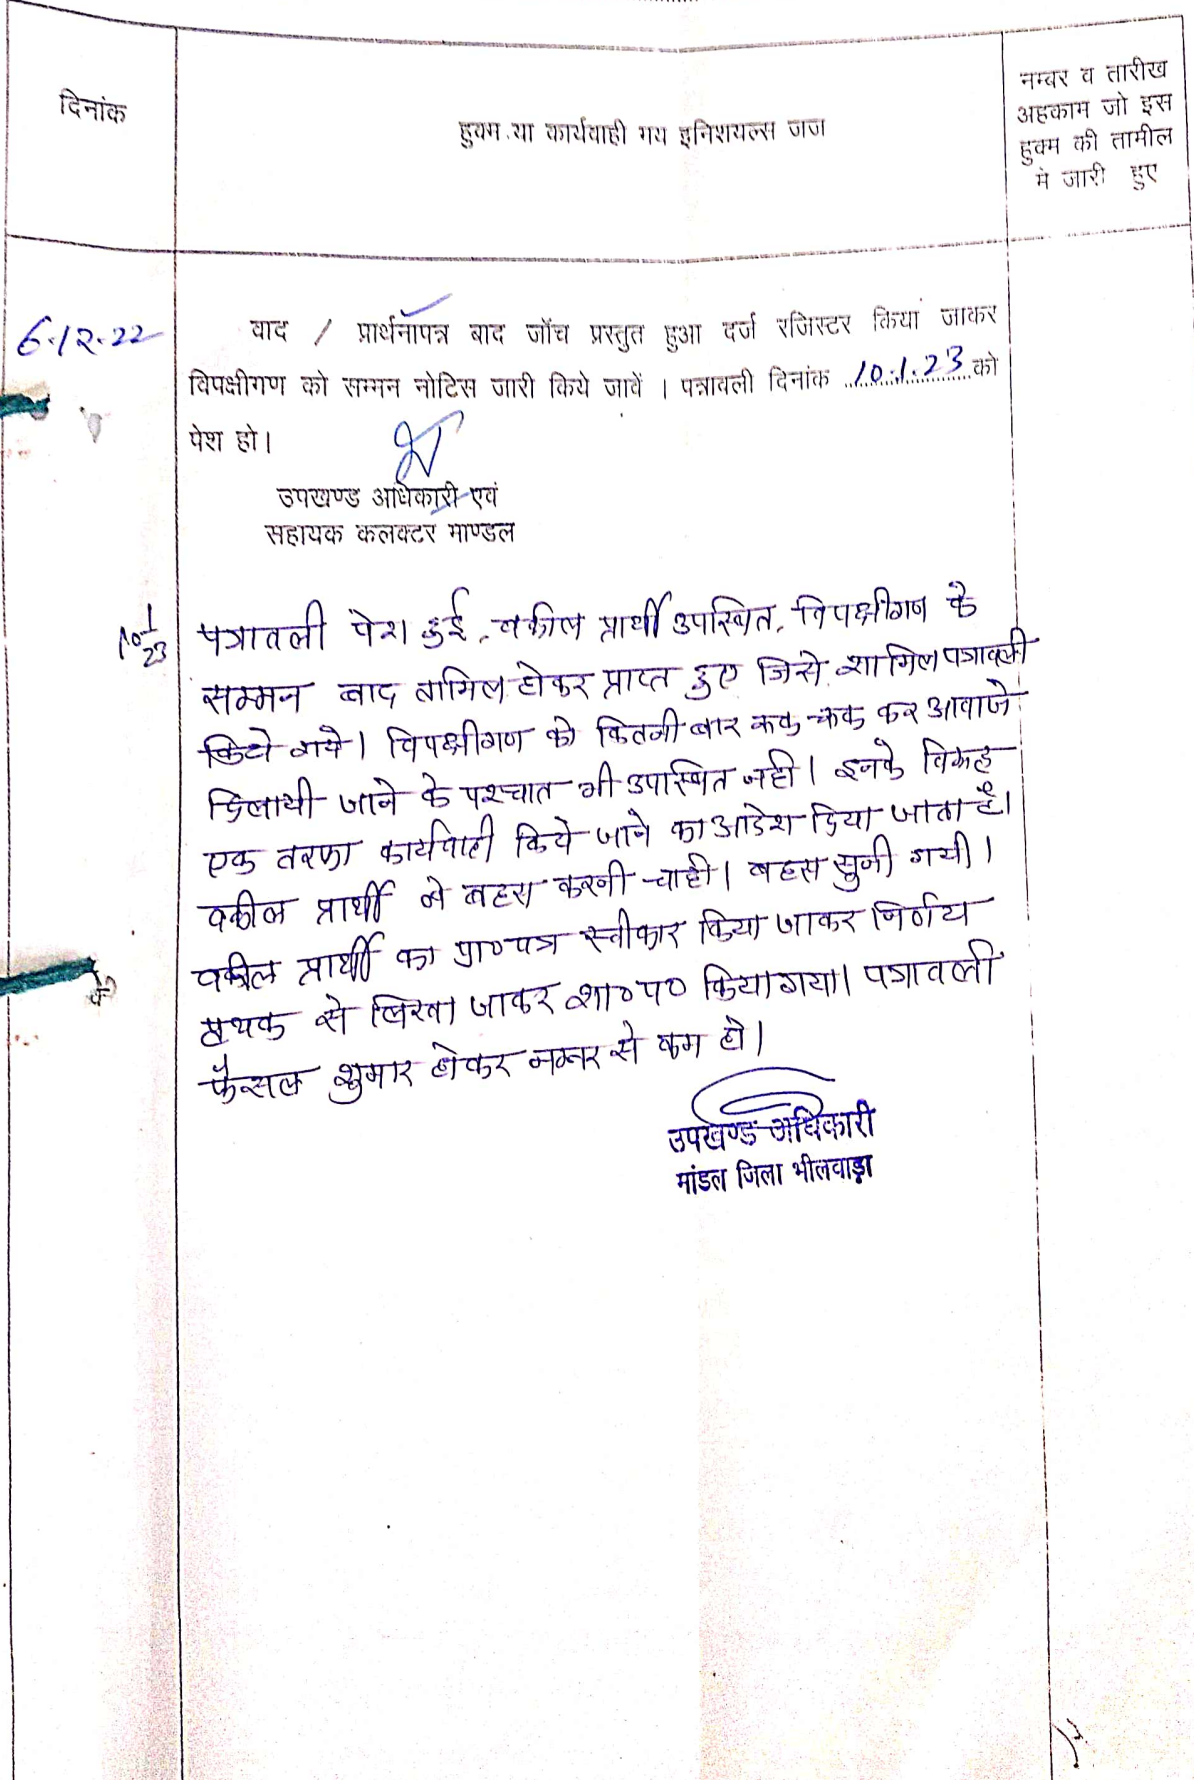 दिनांक
हुक्म या कार्यवाही मय इनिशयल्स जज
नम्बर व तारीख
अहकाम जो इस
हुक्म की तामील
मे जारी हुए
6.12.22
वाद / प्रार्थनापत्र बाद जॉच प्रस्तुत हुआ दर्ज रजिस्टर किया जाकर
विपक्षीगण को सम्मन नोटिस जारी किये जावें । पत्रावली दिनांक 10.1.23 को
पेश हो।
उपखण्ड अधिकारी एवं
सहायक कलक्टर माण्डल
10/1/23
पत्रावली पेश हुई, वकील प्रार्थी उपस्थित, विपक्षीगण के
सम्मन बाद तामिल होकर प्राप्त हुए जिसे शामिल पत्रावली
किये गये। विपक्षीगण को कितनी बार कर आवाजे
दिलायी जाने के पश्चात भी उपस्थित नही। इनके विरूद्ध
एक तरफा कार्यवाही किये जाने का आदेश दिया जाता है।
वकील प्रार्थी ने बहस करनी चाही। बहस सुनी गयी।
वकील प्रार्थी का प्रा०पत्र स्वीकार किया जाकर निर्णय
पृथक से लिखा जाकर शा०प० किया गया। पत्रावली
फैसल शुमार होकर नम्बर से कम हो।
उपखण्ड अधिकारी
मांडल जिला भीलवाड़ा